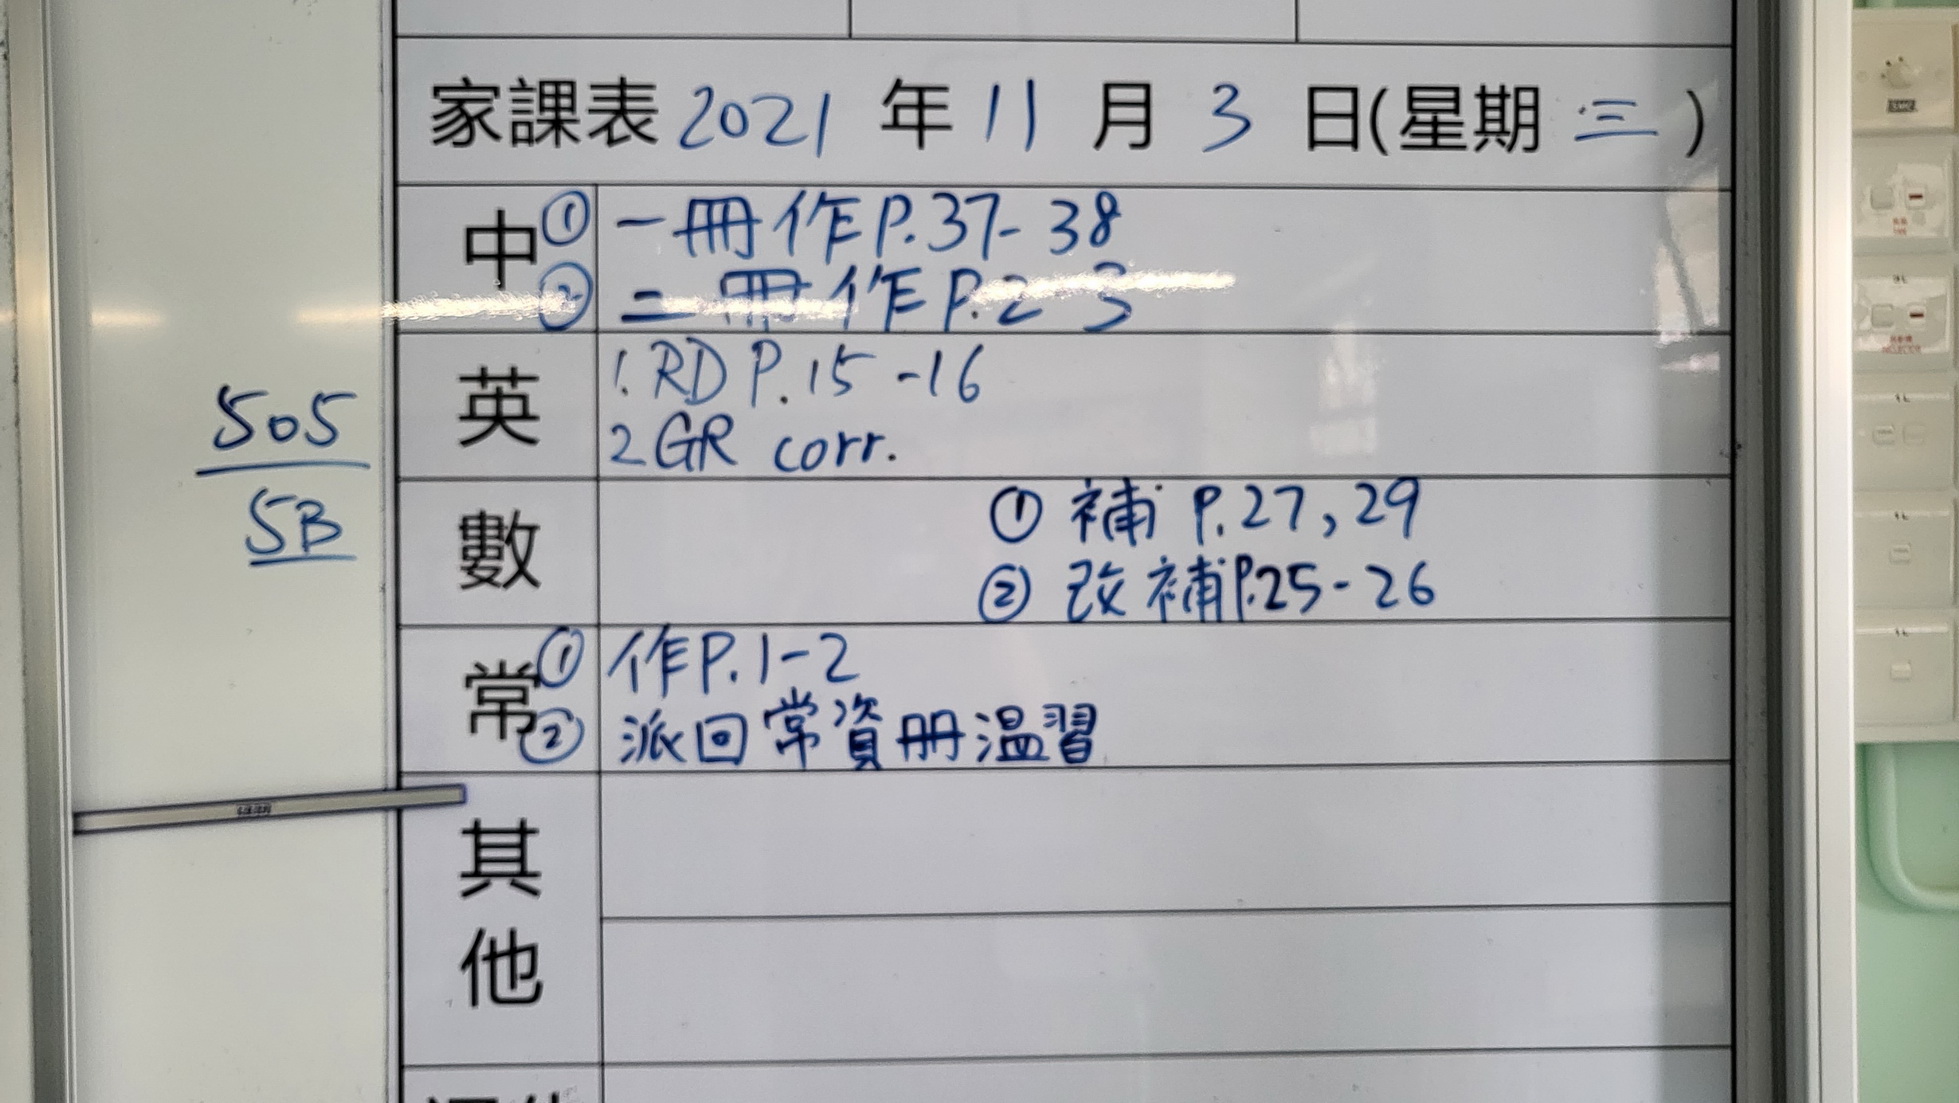 家課表 2021 年 11 月 3 日(星期 三 )
中 ① 一冊作P.37-38
② 二冊作P.2-3
英 1. RD P.15-16
2 GR corr.
505
5B
數 ① 補 P.27,29
② 改補P.25-26
常 ① 作P.1-2
② 派回常資冊溫習
其他